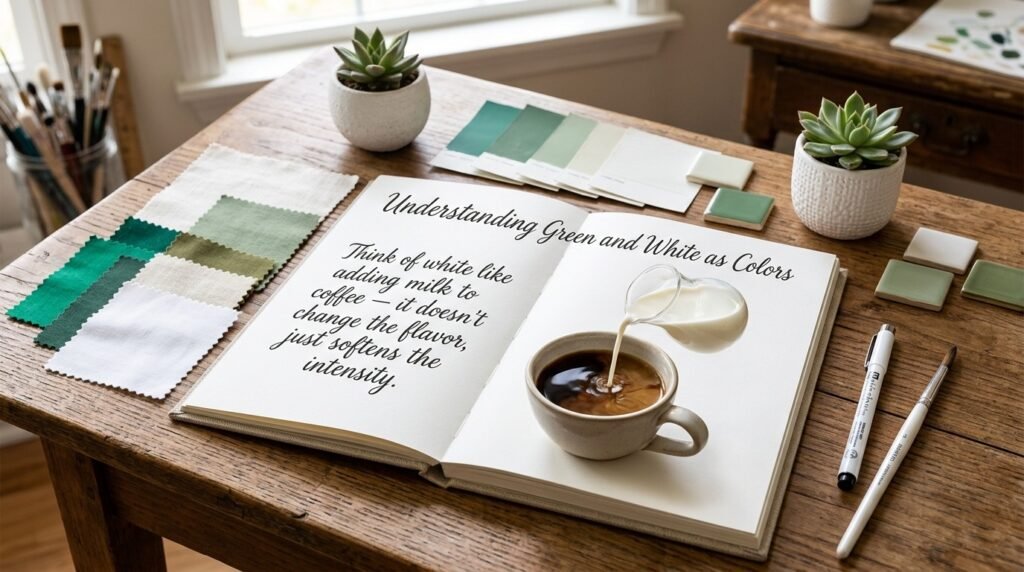 Understanding Green and White as Colors
Think of white like
adding milk to
coffee — it doesn't
change the flavor,
just softens the
intensity.